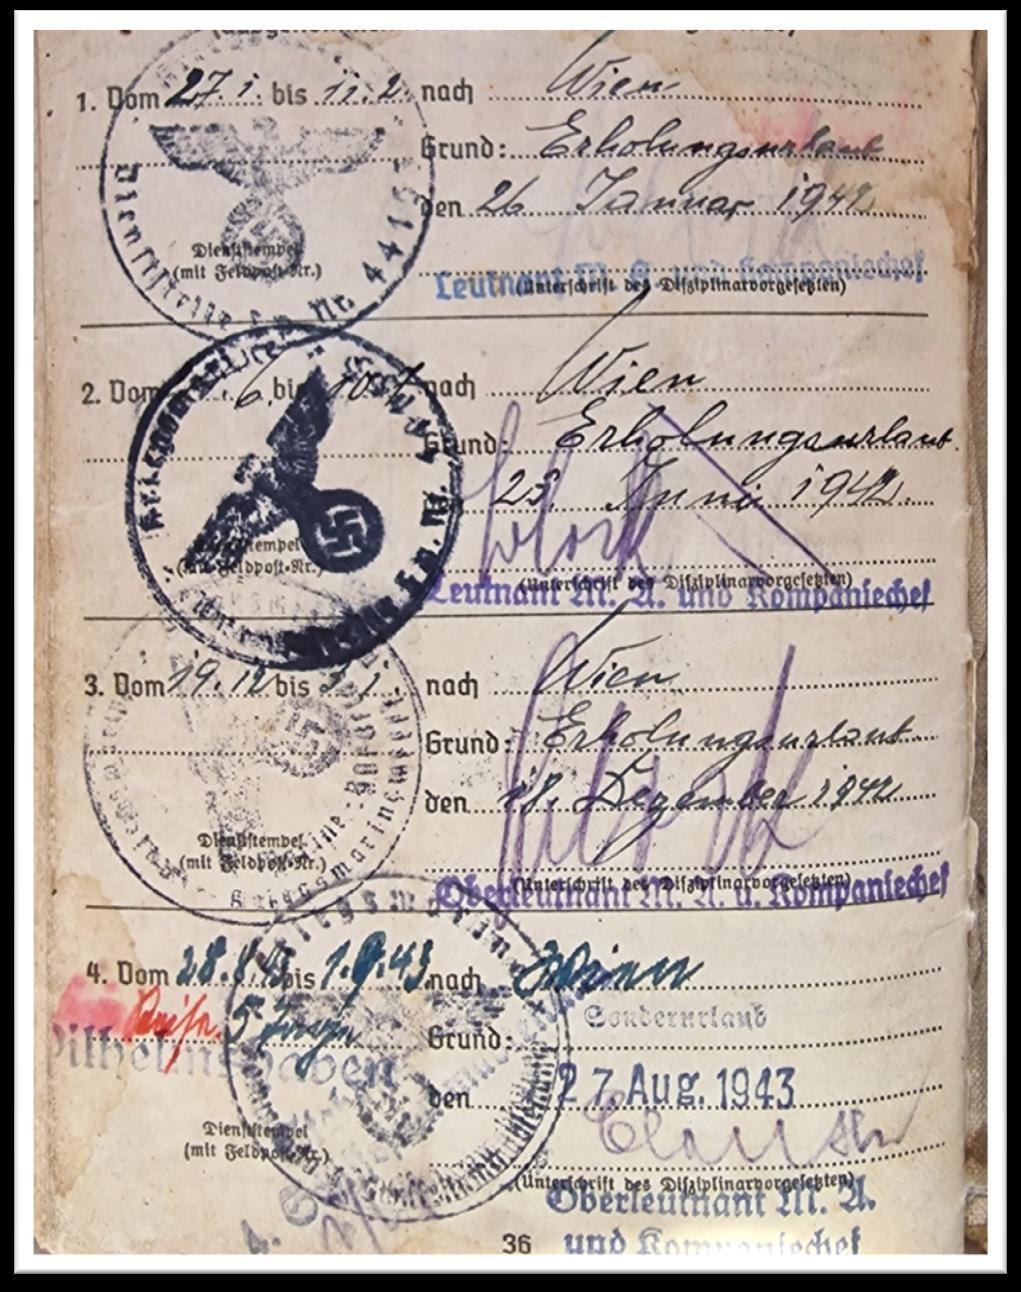 1. Vom 27.1. bis 11.2. nach Wien
Grund: Erholungsurlaub
den 26. Januar 1942
Dienststempel
(mit Feldpost-Nr.)
Dienststelle F.p. Nr. 4415
Leutnant M. A. und Kompaniechef
(Unterschrift des Disziplinarvorgesetzten)
2. Vom 6. bis 10.7. nach Wien
Grund: Erholungsurlaub
23. Juni 1942.
Dienststempel
(mit Feldpost-Nr.)
(Unterschrift des Disziplinarvorgesetzten)
Leutnant M. A. und Kompaniechef
3. Vom 19.12 bis 3.1. nach Wien
Grund: Erholungsurlaub
den 18. Dezember 1942
Dienststempel
(mit Feldpost-Nr.)
Kriegsmarine
(Unterschrift des Disziplinarvorgesetzten)
Oberleutnant M. A. u. Kompaniechef
4. Vom 28.8.43 bis 1.9.43 nach Wien
5 Tage
Grund: Sonderurlaub
Wilhelmshaven
den 27. Aug. 1943
Dienststempel
(mit Feldpost-Nr.)
(Unterschrift des Disziplinarvorgesetzten)
Oberleutnant M. A.
und Kompaniechef
36